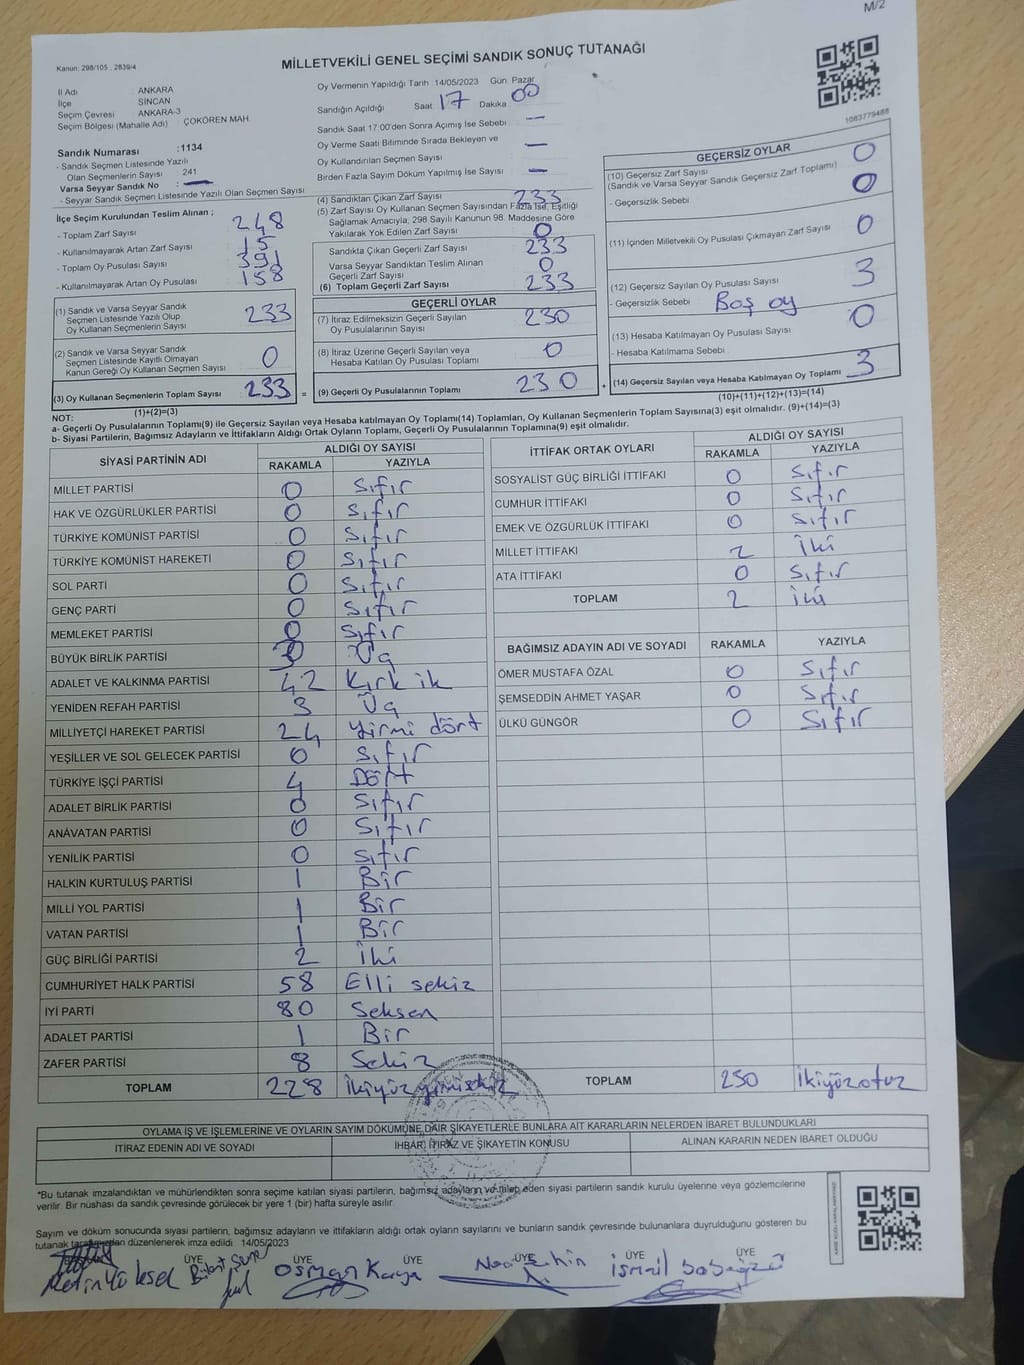 M/2
Kanun: 298/105 , 2839/4
MİLLETVEKİLİ GENEL SEÇİMİ SANDIK SONUÇ TUTANAĞI
İl Adı : ANKARA
İlçe : SİNCAN
Seçim Çevresi : ANKARA-3
Seçim Bölgesi (Mahalle Adı) : ÇOKÖREN MAH.
Sandık Numarası : 1134
- Sandık Seçmen Listesinde Yazılı
Olan Seçmenlerin Sayısı : 241
Varsa Seyyar Sandık No : —
- Seyyar Sandık Seçmen Listesinde Yazılı Olan Seçmen Sayısı
İlçe Seçim Kurulundan Teslim Alınan ;
- Toplam Zarf Sayısı : 248
- Kullanılmayarak Artan Zarf Sayısı : 15
- Toplam Oy Pusulası Sayısı : 391
- Kullanılmayarak Artan Oy Pusulası : 158
(1) Sandık ve Varsa Seyyar Sandık
Seçmen Listesinde Yazılı Olup
Oy Kullanan Seçmenlerin Sayısı : 233
(2) Sandık ve Varsa Seyyar Sandık
Seçmen Listesinde Kayıtlı Olmayan
Kanun Gereği Oy Kullanan Seçmen Sayısı : 0
(3) Oy Kullanan Seçmenlerin Toplam Sayısı : 233 =
(1)+(2)=(3)
Oy Vermenin Yapıldığı Tarih : 14/05/2023 Gün : Pazar
Sandığın Açıldığı Saat 17 Dakika 00
Sandık Saat 17:00'den Sonra Açımış İse Sebebi : —
Oy Verme Saati Bitiminde Sırada Bekleyen ve
Oy Kullandırılan Seçmen Sayısı : —
Birden Fazla Sayım Döküm Yapılmış İse Sayısı : —
(4) Sandıktan Çıkan Zarf Sayısı : 233
(5) Zarf Sayısı Oy Kullanan Seçmen Sayısından Fazla İse, Eşitliği
Sağlamak Amacıyla, 298 Sayılı Kanunun 98. Maddesine Göre
Yakılarak Yok Edilen Zarf Sayısı : 0
Sandıkta Çıkan Geçerli Zarf Sayısı : 233
Varsa Seyyar Sandıktan Teslim Alınan
Geçerli Zarf Sayısı : 0
(6) Toplam Geçerli Zarf Sayısı : 233
GEÇERLİ OYLAR
(7) İtiraz Edilmeksizin Geçerli Sayılan
Oy Pusulalarının Sayısı : 230
(8) İtiraz Üzerine Geçerli Sayılan veya
Hesaba Katılan Oy Pusulası Toplamı : 0
(9) Geçerli Oy Pusulalarının Toplamı : 230 +
1083779488
GEÇERSİZ OYLAR
(10) Geçersiz Zarf Sayısı : 0
(Sandık ve Varsa Seyyar Sandık Geçersiz Zarf Toplamı) 0
- Geçersizlik Sebebi :
(11) İçinden Milletvekili Oy Pusulası Çıkmayan Zarf Sayısı : 0
(12) Geçersiz Sayılan Oy Pusulası Sayısı : 3
- Geçersizlik Sebebi : Boş oy
(13) Hesaba Katılmayan Oy Pusulası Sayısı : 0
- Hesaba Katılmama Sebebi :
(14) Geçersiz Sayılan veya Hesaba Katılmayan Oy Toplamı : 3
(10)+(11)+(12)+(13)=(14)
NOT:
a- Geçerli Oy Pusulalarının Toplamı(9) ile Geçersiz Sayılan veya Hesaba katılmayan Oy Toplamı(14) Toplamları, Oy Kullanan Seçmenlerin Toplam Sayısına(3) eşit olmalıdır. (9)+(14)=(3)
b- Siyasi Partilerin, Bağımsız Adayların ve İttifakların Aldığı Ortak Oyların Toplamı, Geçerli Oy Pusulalarının Toplamına(9) eşit olmalıdır.
SİYASİ PARTİNİN ADI ALDIĞI OY SAYISI
RAKAMLA YAZIYLA
MİLLET PARTİSİ 0 Sıfır
HAK VE ÖZGÜRLÜKLER PARTİSİ 0 Sıfır
TÜRKİYE KOMÜNİST PARTİSİ 0 Sıfır
TÜRKİYE KOMÜNİST HAREKETİ 0 Sıfır
SOL PARTİ 0 Sıfır
GENÇ PARTİ 0 Sıfır
MEMLEKET PARTİSİ 0 Sıfır
BÜYÜK BİRLİK PARTİSİ 3 Üç
ADALET VE KALKINMA PARTİSİ 42 Kırk ik
YENİDEN REFAH PARTİSİ 3 Üç
MİLLİYETÇİ HAREKET PARTİSİ 24 Yirmi dört
YEŞİLLER VE SOL GELECEK PARTİSİ 0 Sıfır
TÜRKİYE İŞÇİ PARTİSİ 4 Dört
ADALET BİRLİK PARTİSİ 0 Sıfır
ANAVATAN PARTİSİ 0 Sıfır
YENİLİK PARTİSİ 0 Sıfır
HALKIN KURTULUŞ PARTİSİ 1 Bir
MİLLİ YOL PARTİSİ 1 Bir
VATAN PARTİSİ 1 Bir
GÜÇ BİRLİĞİ PARTİSİ 2 İki
CUMHURİYET HALK PARTİSİ 58 Elli sekiz
İYİ PARTİ 80 Seksen
ADALET PARTİSİ 1 Bir
ZAFER PARTİSİ 8 Sekiz
TOPLAM 228 İkiyüz yirmisekiz
İTTİFAK ORTAK OYLARI ALDIĞI OY SAYISI
RAKAMLA YAZIYLA
SOSYALİST GÜÇ BİRLİĞİ İTTİFAKI 0 Sıfır
CUMHUR İTTİFAKI 0 Sıfır
EMEK VE ÖZGÜRLÜK İTTİFAKI 0 Sıfır
MİLLET İTTİFAKI 2 İki
ATA İTTİFAKI 0 Sıfır
TOPLAM 2 İki
BAĞIMSIZ ADAYIN ADI VE SOYADI RAKAMLA YAZIYLA
ÖMER MUSTAFA ÖZAL 0 Sıfır
ŞEMSEDDİN AHMET YAŞAR 0 Sıfır
ÜLKÜ GÜNGÖR 0 Sıfır
TOPLAM 230 İkiyüzotuz
OYLAMA İŞ VE İŞLEMLERİNE VE OYLARIN SAYIM DÖKÜMÜNE DAİR ŞİKAYETLERLE BUNLARA AİT KARARLARIN NELERDEN İBARET BULUNDUKLARI
İTİRAZ EDENİN ADI VE SOYADI İHBAR, İTİRAZ VE ŞİKAYETİN KONUSU ALINAN KARARIN NEDEN İBARET OLDUĞU
*Bu tutanak imzalandıktan ve mühürlendikten sonra seçime katılan siyasi partilerin, bağımsız adayların ve talep eden siyasi partilerin sandık kurulu üyelerine veya gözlemcilerine
verilir. Bir nüshası da sandık çevresinde görülecek bir yere 1 (bir) hafta süreyle asılır.
Sayım ve döküm sonucunda siyasi partilerin, bağımsız adayların ve ittifakların aldığı ortak oyların sayılarını ve bunların sandık çevresinde bulunanlara duyrulduğunu gösteren bu
tutanak tarafımızdan düzenlenerek imza edildi. 14/05/2023
ÜYE ÜYE ÜYE ÜYE ÜYE ÜYE
Metin Yüksel Osman Kaya İsmail